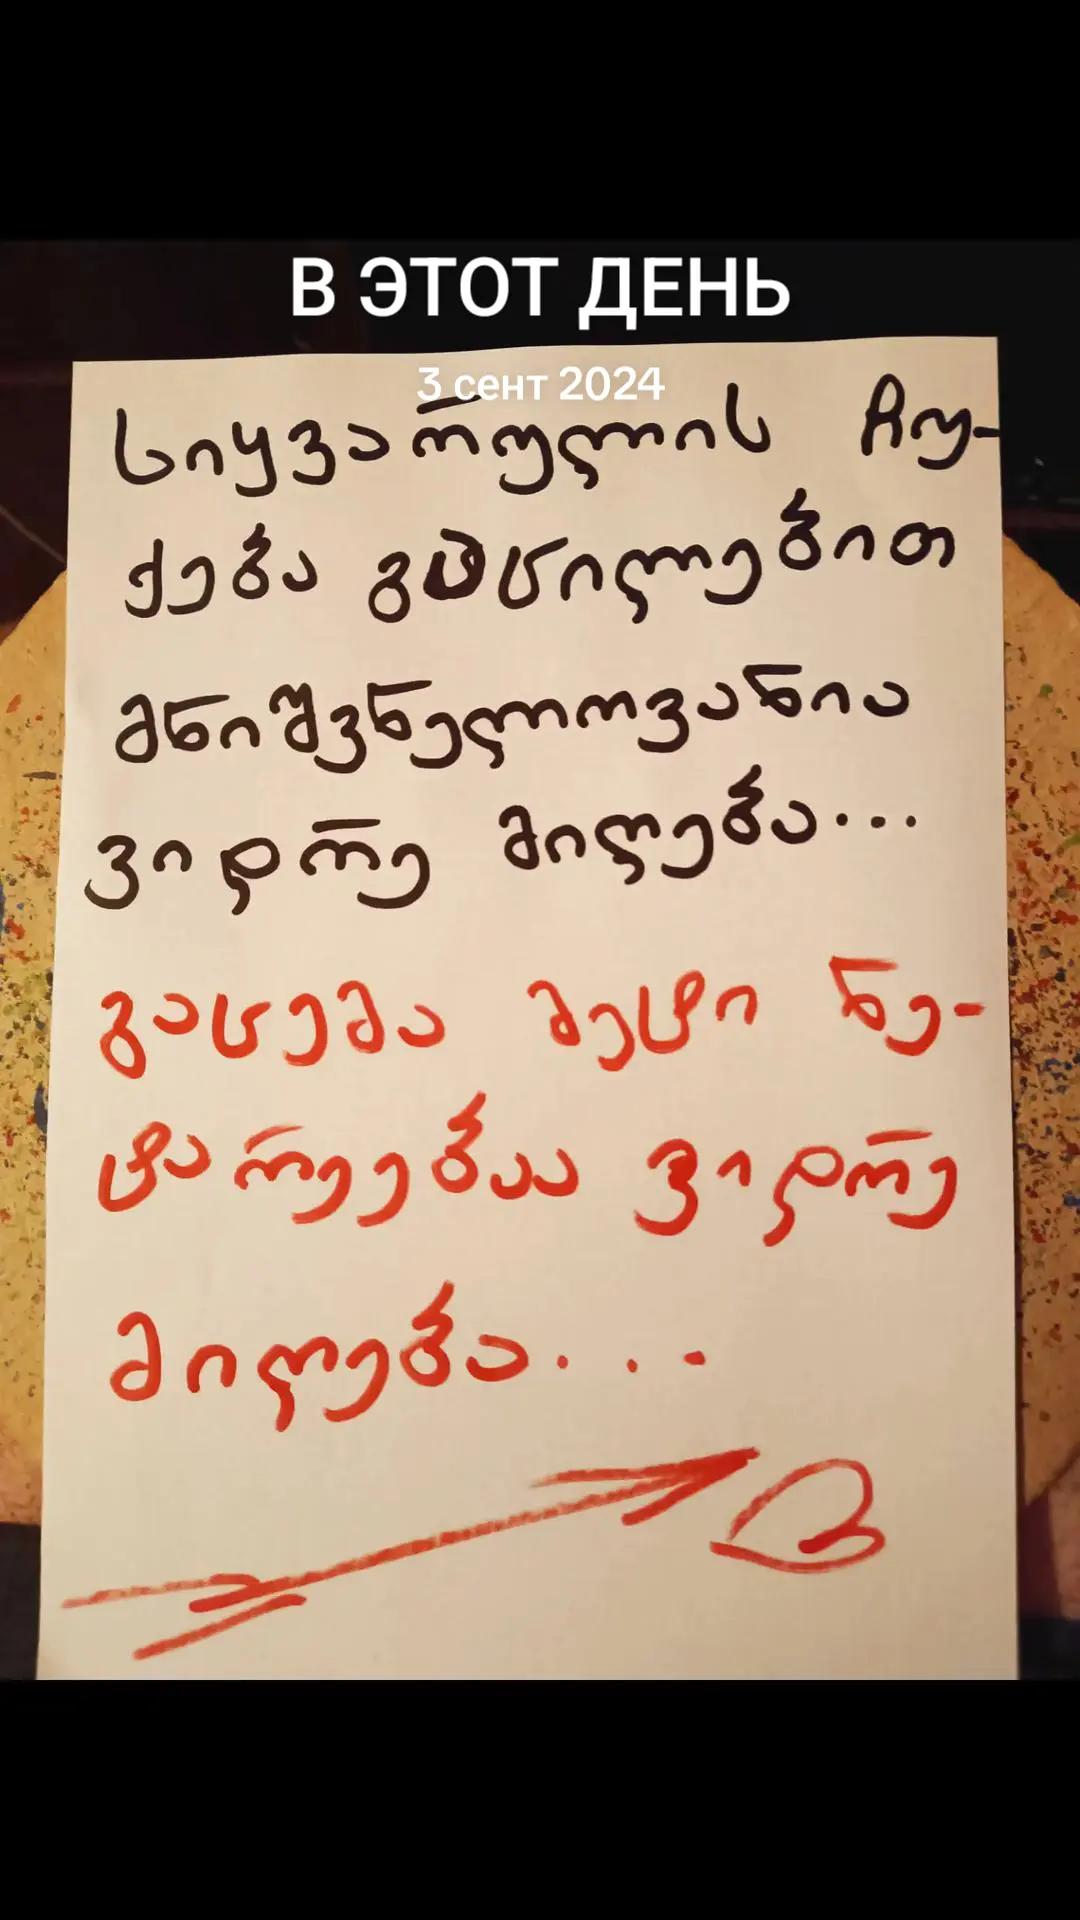 В ЭТОТ ДЕНЬ
3 сент 2024
სიყვარულის ჩუ-
ქება გაცილებით
მნიშვნელოვანია
ვიდრე მიღება...
გაცემა მეტი ნე-
ტარებაა ვიდრე
მიღება...